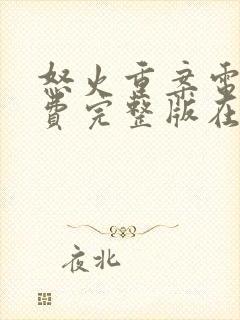 怒火重案电
费完整版在
夜北